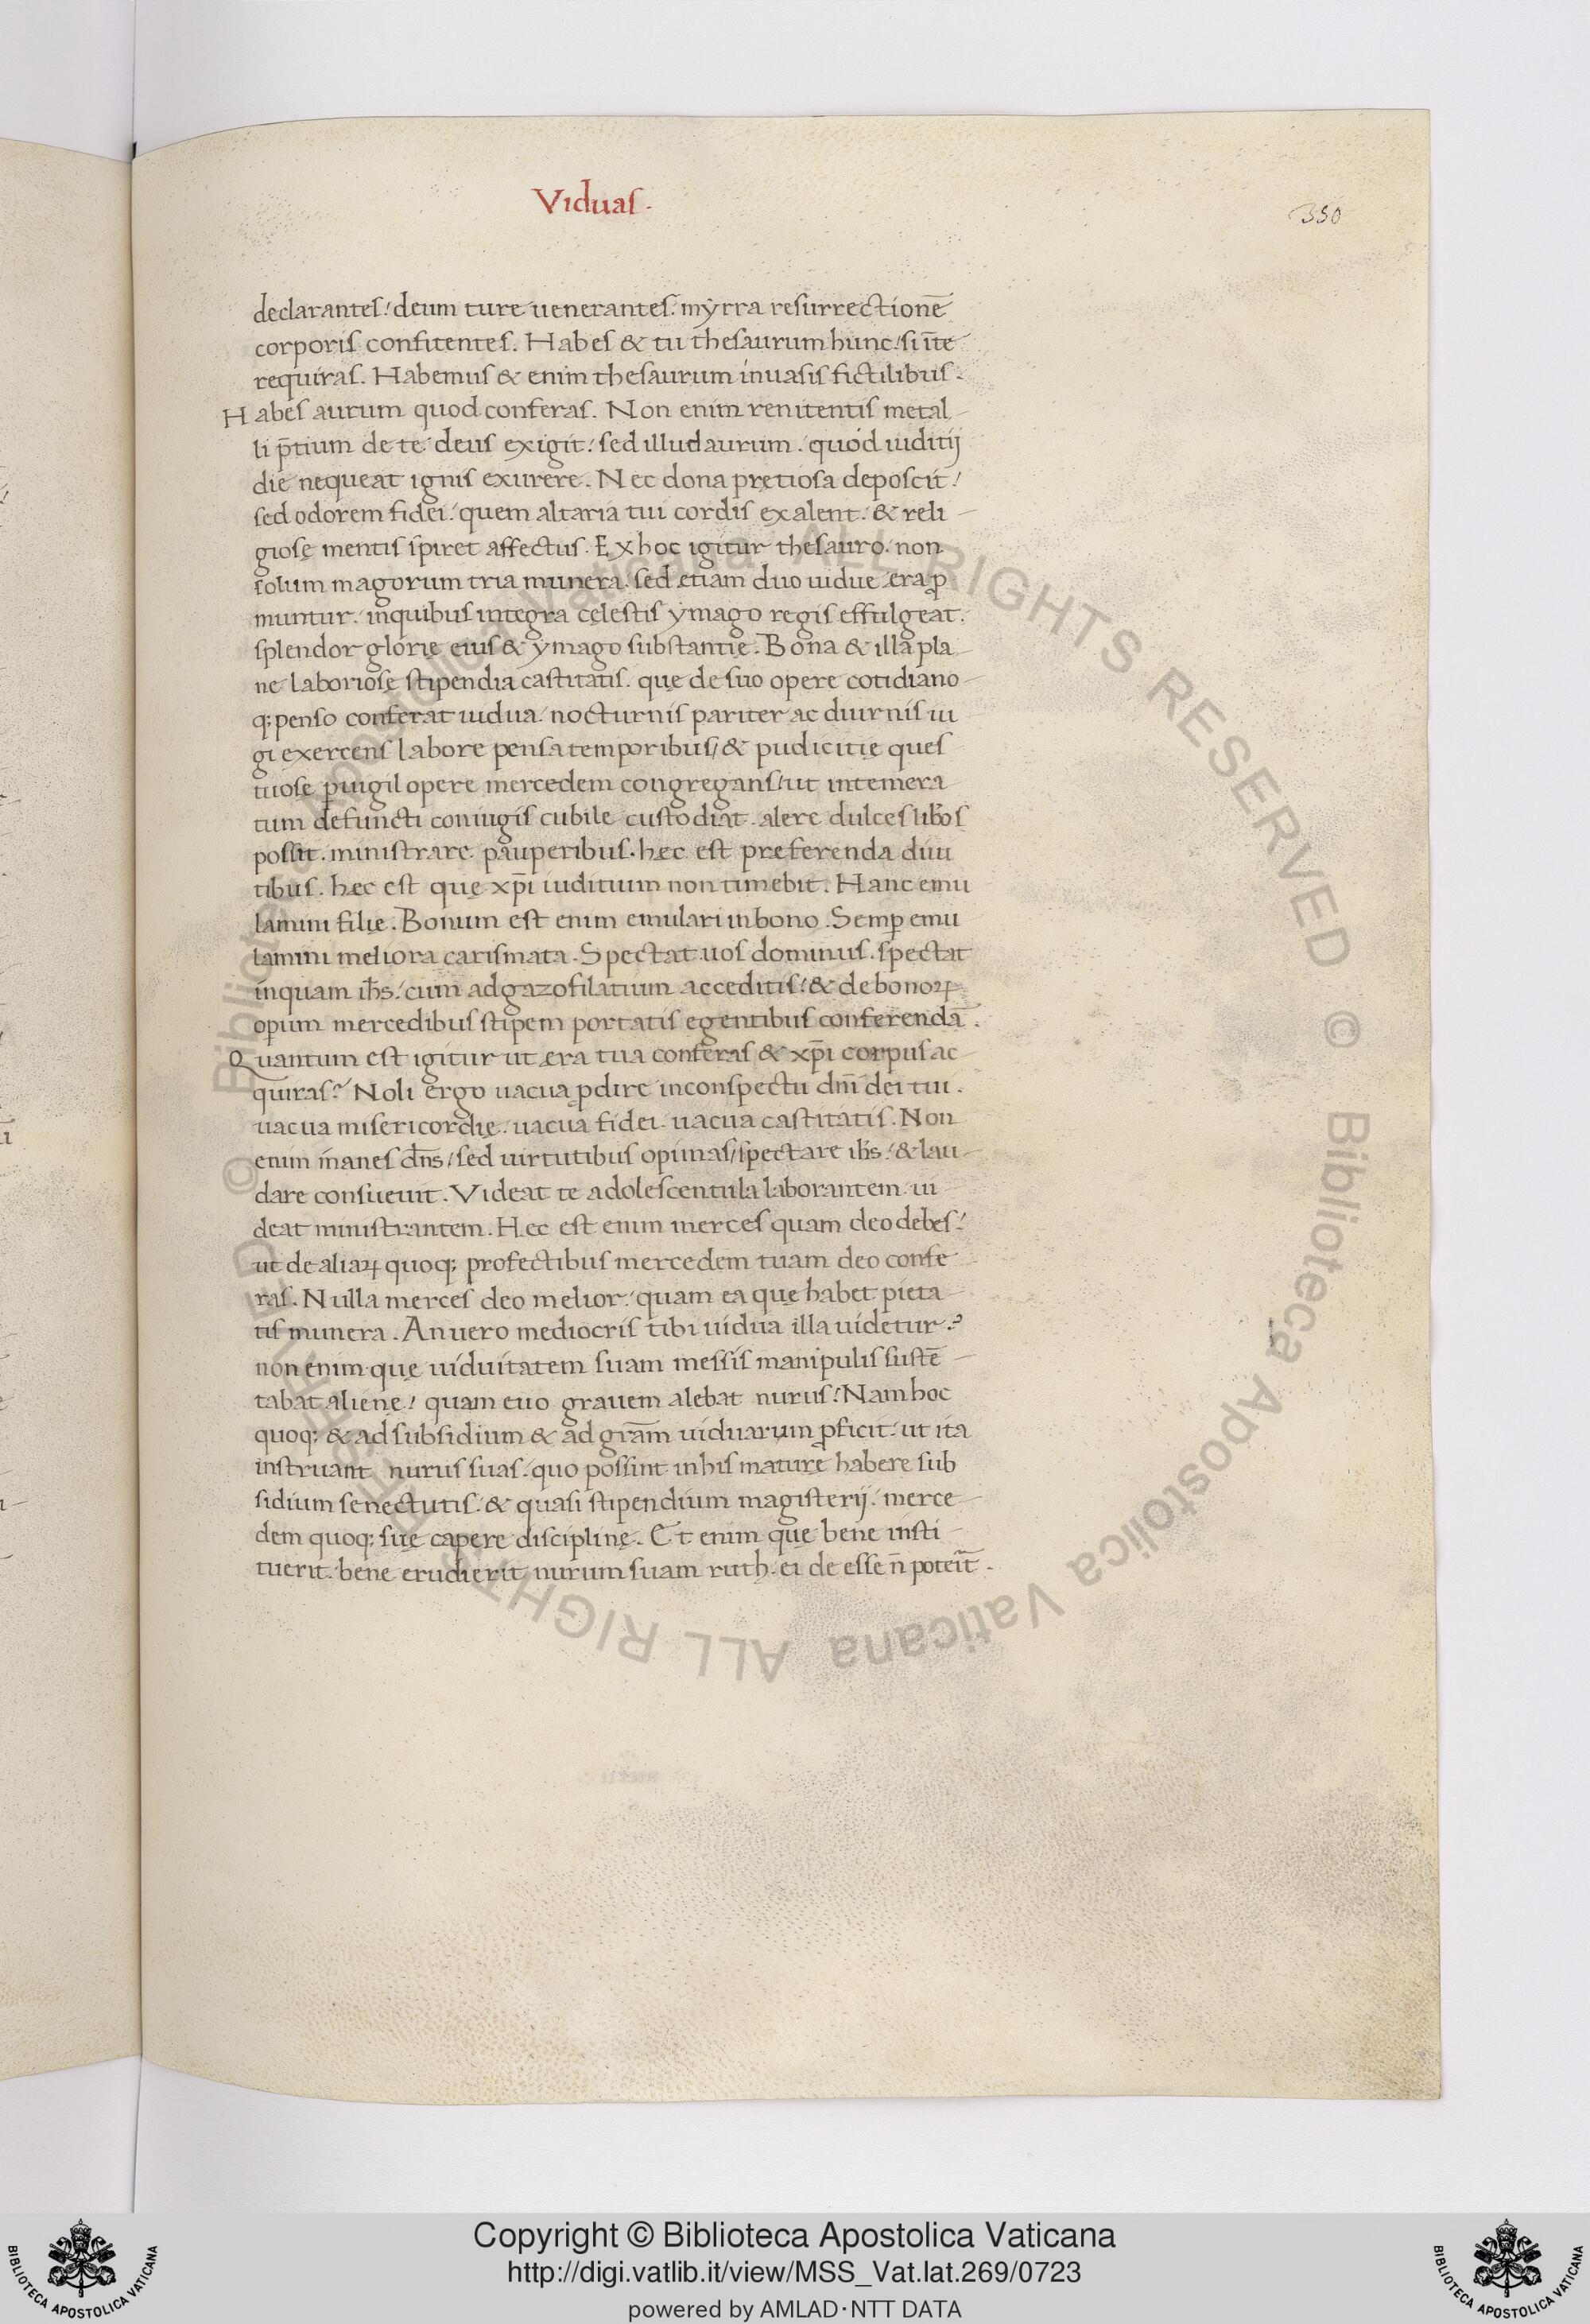 Viduas.
350
declarantes: deum ture uenerantes: myrra resurrectionē
corporis confitentes. Habes & tu thesaurum hunc: si ī te
requiras. Habemus & enim thesaurum in uasis fictilibus.
Habes aurum quod conferas. Non enim renitentis metal
li p̄tium de te deus exigit: sed illud aurum. quod iuditij
die nequeat ignis exurere. Nec dona pretiosa deposcit:
sed odorem fidei: quem altaria tui cordis exalent. & reli
giosę mentis spiret affectus. Ex hoc igitur thesauro. non
solum magorum tria munera. sed etiam duo uidue era ꝓ
muntur. in quibus integra cęlestis ymago regis effulgeat.
splendor glorię eius & ymago substantię. Bona & illa pla
ne laboriosę stipendia castitatis. quę de suo opere cotidiano
q; penso conferat uidua. nocturnis pariter ac diurnis iu
gi exercens labore pensa temporibus/ & pudicitię ques
tuosę ꝑuigil opere mercedem congregans/ ut intemera
tum defuncti coniugis cubile custodiat. alere dulces lib̄os
possit. ministrare pauperibus. hęc est preferenda diui
tibus. hęc est quę xp̄i iuditium non timebit. Hanc emu
lamini filię. Bonum est enim emulari in bono. Semꝑ emu
lamini meliora carismata. Spectat uos dominus. spectat
inquam ih̄s: cum ad gazofilatium acceditis: & de bonoꝝ
oꝑum mercedibus stipem portatis egentibus conferendā.
Quantum est igitur ut era tua conferas & xp̄i corpus ac
quiras? Noli ergo uacua ꝓdire in conspectu dn̄i dei tui.
uacua misericordię. uacua fidei. uacua castitatis. Non
enim inanes dn̄s/ sed uirtutibus opimas/ spectare ih̄s: & lau
dare consueuit. Videat te adolescentula laborantem. ui
deat ministrantem. Hęc est enim merces quam deo debes:
ut de aliaꝝ quoq; profectibus mercedem tuam deo confe
ras. Nulla merces deo melior: quam ea quę habet pieta
tis munera. An uero mediocris tibi uidua illa uidetur?
non enim quę uiduitatem suam messis manipulis sustē
tabat alienę: quam euo grauem alebat nurus: Nam hoc
quoq; & ad subsidium & ad gr̄am uiduarum ꝓficit: ut ita
instruant nurus suas. quo possint in his maturę habere sub
sidium senectutis. & quasi stipendium magisterij. merce
dem quoq; suę capere disciplinę. Et enim quę bene insti
tuerit. bene erudierit nurum suam ruth. ei de esse n̄ poteīt.
Copyright © Biblioteca Apostolica Vaticana
http://digi.vatlib.it/view/MSS_Vat.lat.269/0723
powered by AMLAD·NTT DATA
BIBLIOTECA APOSTOLICA VATICANA
BIBLIOTECA APOSTOLICA VATICANA
© Biblioteca Apostolica Vaticana ALL RIGHTS RESERVED © Biblioteca Apostolica Vaticana ALL RIGHTS RESERVED